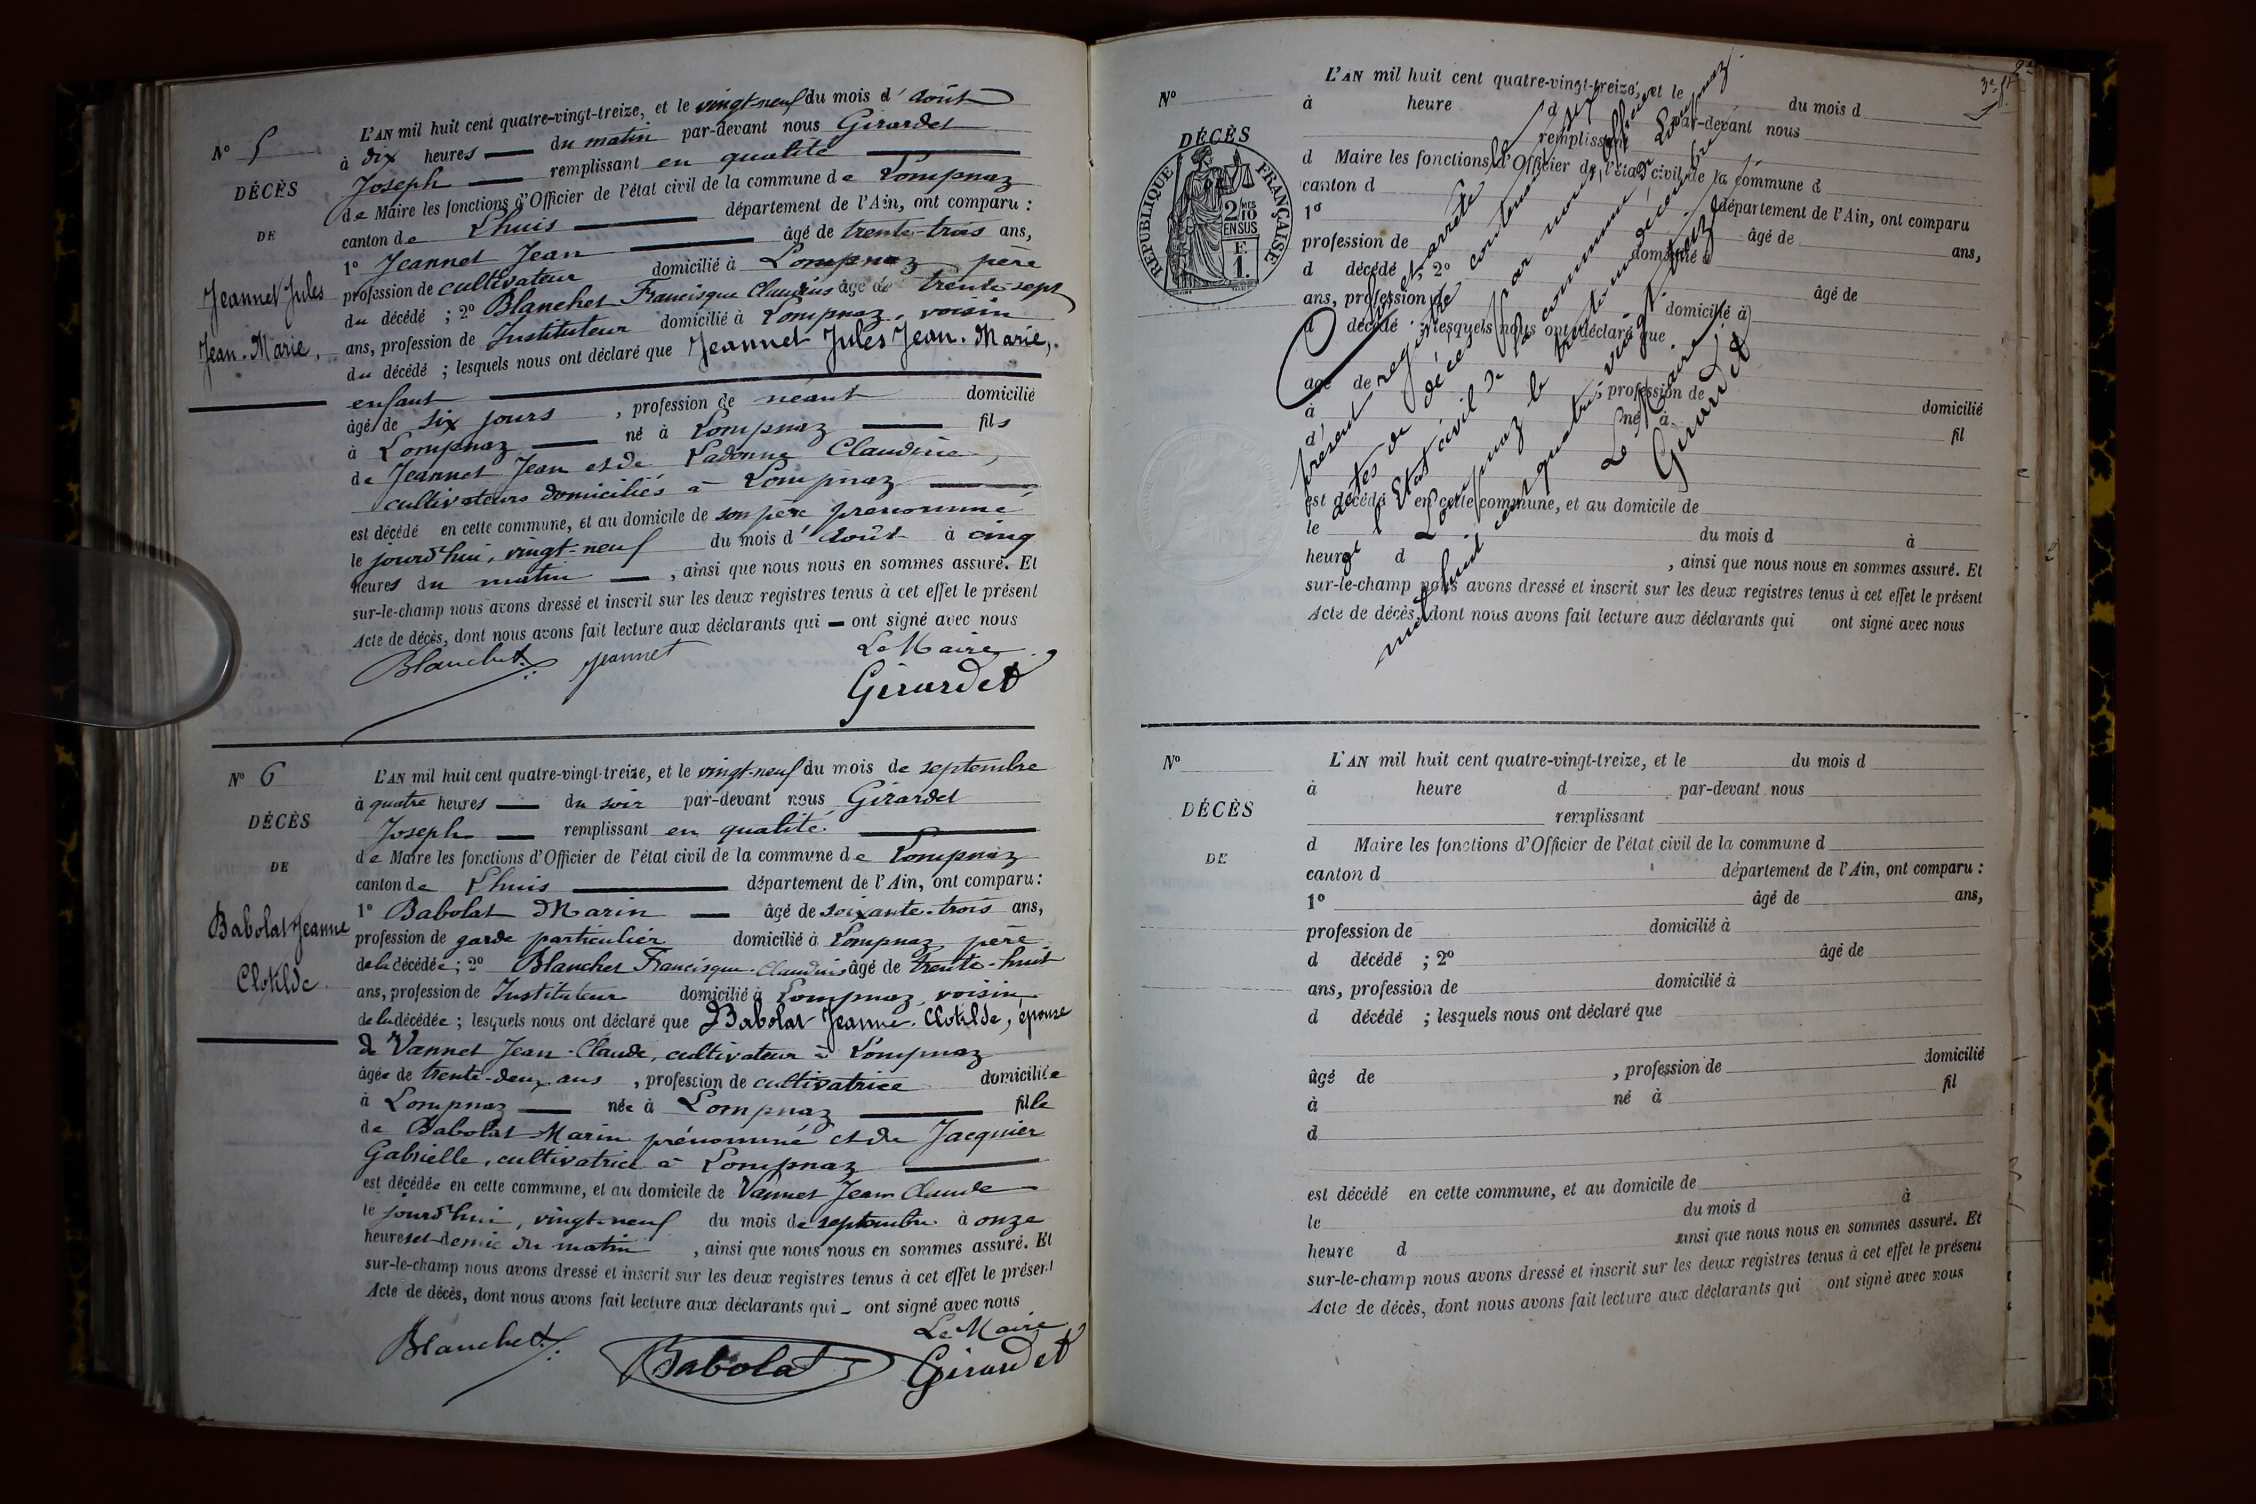 N° 5
DÉCÈS
DE
Jeannet Jules
Jean-Marie,
L'AN mil huit cent quatre-vingt-treize, et le vingt-neuf du mois d' août
à dix heures du matin par-devant nous Girardet
Joseph remplissant en qualité
de Maire les fonctions d'Officier de l'état civil de la commune de Lompnaz
canton de Lhuis département de l'Ain, ont comparu :
1° Jeannet Jean âgé de trente-trois ans,
profession de cultivateur domicilié à Lompnaz père
du décédé ; 2° Blanchet Francisque Claudius âgé de trente-sept
ans, profession de Instituteur domicilié à Lompnaz, voisin
du décédé ; lesquels nous ont déclaré que Jeannet Jules Jean-Marie,
enfant
âgé de six jours , profession de néant domicilié
à Lompnaz né à Lompnaz fils
de Jeannet Jean et de Ladonne Claudine,
cultivateurs domiciliés à Lompnaz
est décédé en cette commune, et au domicile de son père prénommé
le jourd'hui, vingt-neuf du mois d' août à cinq
heures du matin , ainsi que nous nous en sommes assuré. Et
sur-le-champ nous avons dressé et inscrit sur les deux registres tenus à cet effet le présent
Acte de décès, dont nous avons fait lecture aux déclarants qui ont signé avec nous
Blanchet Jeannet Le Maire
Girardet
N° 6
DÉCÈS
DE
Babolat Jeanne
Clotilde
L'AN mil huit cent quatre-vingt-treize, et le vingt-neuf du mois de septembre
à quatre heures du soir par-devant nous Girardet
Joseph remplissant en qualité
de Maire les fonctions d'Officier de l'état civil de la commune de Lompnaz
canton de Lhuis département de l'Ain, ont comparu :
1° Babolat Marin âgé de soixante-trois ans,
profession de garde particulier domicilié à Lompnaz père
de la décédée ; 2° Blanchet Francisque-Claudius âgé de trente-huit
ans, profession de Instituteur domicilié à Lompnaz, voisin
de la décédée ; lesquels nous ont déclaré que Babolat Jeanne-Clotilde, épouse
de Vannet Jean-Claude, cultivateur à Lompnaz
âgée de trente-deux ans , profession de cultivatrice domiciliée
à Lompnaz née à Lompnaz fille
de Babolat Marin prénommé et de Jacquier
Gabrielle, cultivatrice à Lompnaz
est décédée en cette commune, et au domicile de Vannet Jean Claude
le jourd'hui, vingt-neuf du mois de septembre à onze
heures et demie du matin , ainsi que nous nous en sommes assuré. Et
sur-le-champ nous avons dressé et inscrit sur les deux registres tenus à cet effet le présent
Acte de décès, dont nous avons fait lecture aux déclarants qui ont signé avec nous
Blanchet Babolat Le Maire
Girardet
N°
DÉCÈS
RÉPUBLIQUE FRANÇAISE
2 MES
10
EN SUS
F.
1.
L'AN mil huit cent quatre-vingt-treize, et le du mois d
à heure d par-devant nous
remplissant
d Maire les fonctions d'Officier de l'état civil de la commune d
canton d département de l'Ain, ont comparu
1° âgé de ans,
profession de domicilié à
d décédé ; 2° âgé de
ans, profession de domicilié à
d décédé ; lesquels nous ont déclaré que
âgé de , profession de domicilié
à né à fil
d
est décédé en cette commune, et au domicile de
le du mois d à
heure d , ainsi que nous nous en sommes assuré. Et
sur-le-champ nous avons dressé et inscrit sur les deux registres tenus à cet effet le présent
Acte de décès, dont nous avons fait lecture aux déclarants qui ont signé avec nous
Clos et arrêté le
présent registre contenant six
actes de décès par nous, officier
de l'Etat civil de la commune de Lompnaz
à Lompnaz le trente-un décembre
mil huit cent quatre-vingt-treize.
Le Maire,
Girardet
N°
DÉCÈS
DE
L'AN mil huit cent quatre-vingt-treize, et le du mois d
à heure d par-devant nous
remplissant
d Maire les fonctions d'Officier de l'état civil de la commune d
canton d département de l'Ain, ont comparu :
1° âgé de ans,
profession de domicilié à
d décédé ; 2° âgé de
ans, profession de domicilié à
d décédé ; lesquels nous ont déclaré que
âgé de , profession de domicilié
à né à fil
d
est décédé en cette commune, et au domicile de
le du mois d à
heure d ainsi que nous nous en sommes assuré. Et
sur-le-champ nous avons dressé et inscrit sur les deux registres tenus à cet effet le présent
Acte de décès, dont nous avons fait lecture aux déclarants qui ont signé avec nous